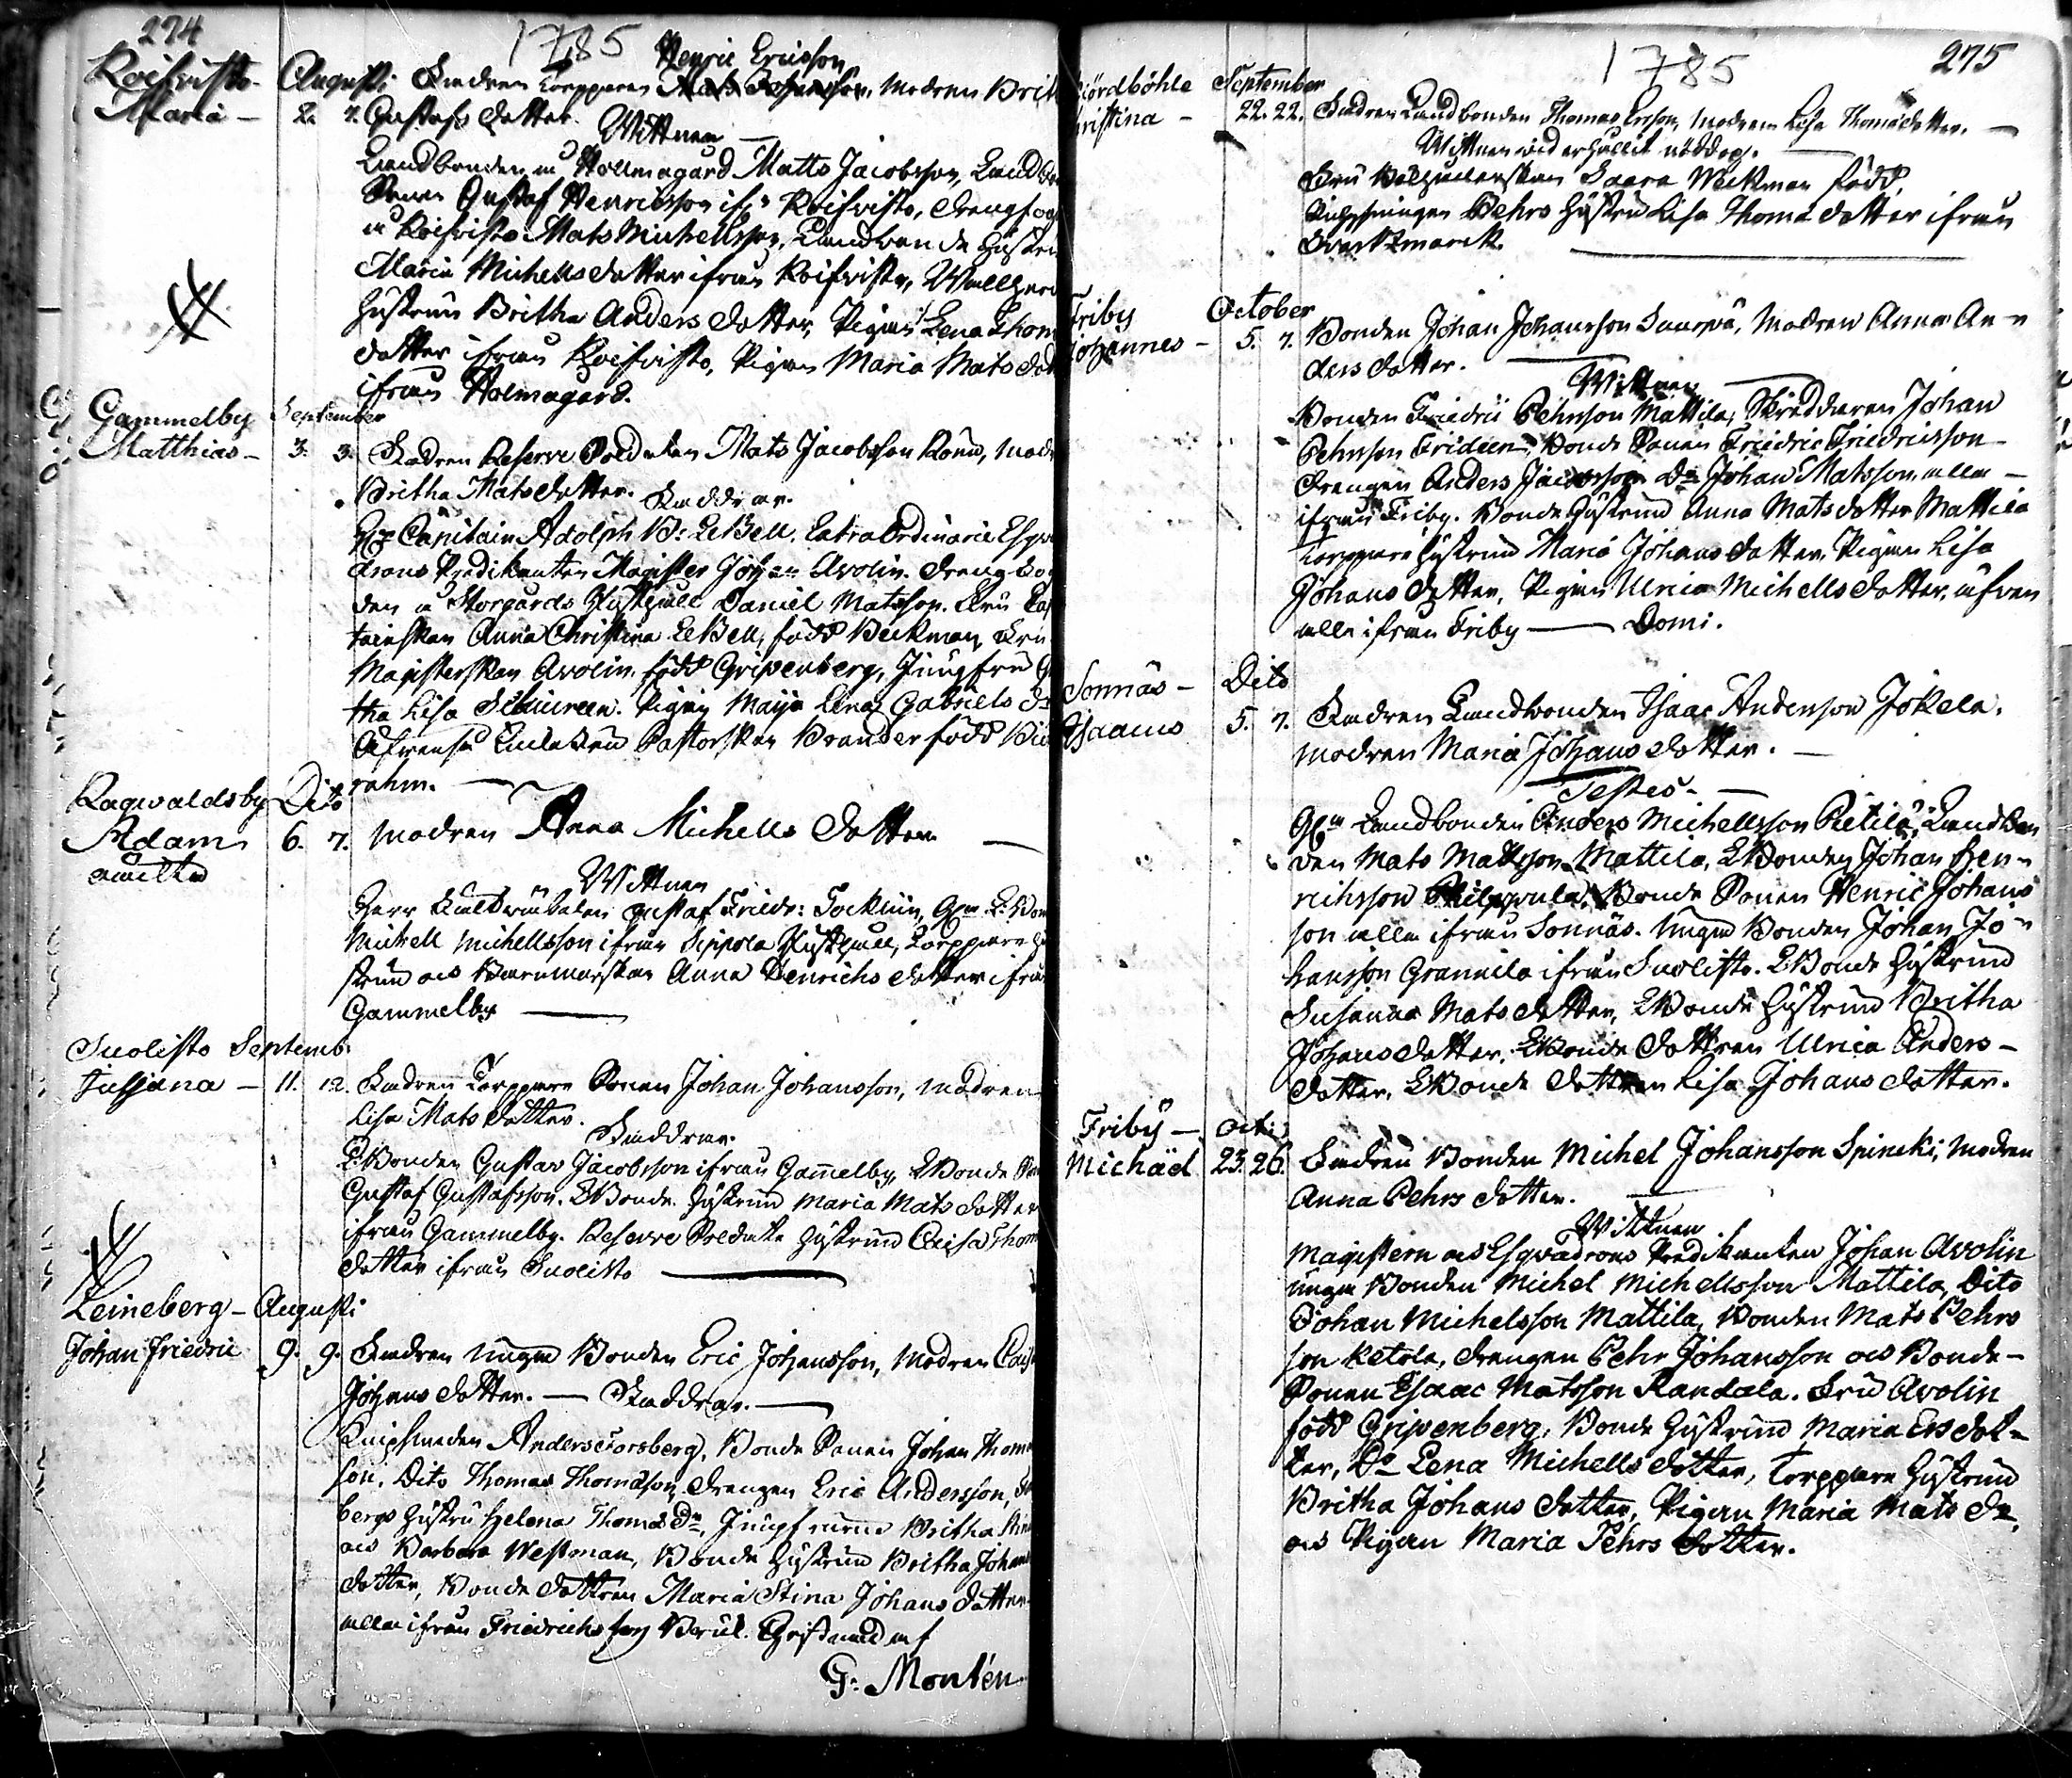 274
1785
Henric Ericsson
Koifvisto - Augusti Fadren Torpparen Mats Johansson, Modren Brit
Maria - 2. 7. Gustafs dotter.
Wittnen
Landbonden Hollmagård Matts Jacobsson, Landbo
Sonen Gustaf Henricsson ifrån Koifvisto, Drengfog
Koifvisto Mats Michellsson, Landbonde Hustru
Maria Michells dotter ifrån Koifvisto,
Hustrun Britha Anders dotter, Pigan Lena Thom
dotter ifrån Koifvisto, Pigan Maria Mats dott
ifrån Holmagård.
Gammelby September
Matthias - 3. 3. Fadren Reserve Soldaten Mats Jacobsson, Mod
Britha Mats dotter. Faddrar.
Capitain Adolph B: LeBell, Extra Ordinarie Esqva
drons Predikanten Magister Johan Avolin. Dreng
den Storgårds Daniel Matsson. Fru Cap
tainskan Anna Christina LeBell, född Beckman, Fru
Magisterskan Avolin, född Gripenberg, Jungfru
tha Lisa. Pigan Maija Lena Gabriels
Pastorskan Brander född
rahm.
Ragvaldsby Dito
Adam 6. 7. Modren Anna Michells dotter
oäckta
Wittnen
Herr Gustaf Friedr:
Michell Michellsson ifrån Sippola, Torppare Hu
strun och Barnmorskan Anna Henrichs dotter ifrån
Gammelby
Suolisto Septemb:
Jusjana - 11. 12. Fadren Torppare Sonen Johan Johansson, Modren
Lisa Mats dotter.
Faddrar.
Bonden Gustav Jacobsson ifrån Gammelby, Bonde
Gustaf Gustafsson. Bonde Hustrun Maria Mats dotter
ifrån Gammelby. Reserve Soldate Hustrun Caisa Thom
dotter ifrån Suolisto
Leineberg - Augusti
Johan Friedric 9. 9. Fadren unga Bonden Eric Johansson, Modren Caisa
Johans dotter. - Faddrar. -
Knipsmeden Anders Forsberg, Bonde Sonen Johan Thom
son, Dito Thomas Thomasson, Drengen Eric Andersson,
bergs Hustru Helena Thomas Dr, Jungfrurna Britha Stina
och Barbara Westman, Bonde Hustrun Britha Johans
dotter, Bonde dottren Maria Stina Johans dotter
alla ifrån Friedrichsfors Bruk. Christnad af
G: Montén
1785
275
jördböhle September
hristina - 22. 22. Fadren Landbonden Thomas Ersson, Modren Lisa Thomædotter. -
Wittnen wid erhållit nöddop.
Fru Saara Weckman född,
Pehrs Hustru Lisa Thomædotter ifrån
Svartzmarck.
Friby October
Johannes - 5. 7. Bonden Johan Johansson, Modren Anna An-
ders dotter.
Wittnen
Bonden Friedric Pehrsson Mattila, Skräddaren Johan
Pehrsson Frideen, Bonde Sonen Friedric Friedricsson
Drengen Anders Jacobsson Do Johan Matsson, alla
ifrån Friby. Bonde Hustrun Anna Mats dotter Mattila
Torppare Hustrun Maria Johans dotter, Pigan Lisa
Johans dotter, Pigan Ulrica Michells dotter, äfven
alla ifrån Friby - Domi.
Sonnäs - Dito
Isaacus 5. 7. Fadren Landbonden Isaac Andersson Jokela.
Modren Maria Johans dotter.
Testes -
Landbonden Anders Michellsson Pietilä, Landbon
den Mats Mattsson Mattila, LBonden Johan Hen-
richsson Philppula, Bonde Sonen Henric Johans
son alla ifrån Sonnäs. Unga Bonden Johan Jo-
hansson Grannila ifrån Suolisto. LBonde Hustrun
Susanna Mats dotter, LBonde Hustrun Britha
Johans dotter, LBonde dottren Ulrica Anders-
dotter, LBonde dottren Lisa Johans dotter.
Friby - Octi:
Michäel 25. 26. Fadren Bonden Michel Johansson Spincki, Modren
Anna Pehrs dotter.
Wittnen
Magistern och Esqvadrons Predikanten Johan Avolin
unga Bonden Michel Michellsson Mattila, Dito
Johan Michelsson Mattila, Bonden Mats Pehrs
son Ketola, Drengen Pehr Johansson och Bonde-
Sonen Isaac Matsson Randala. Fru Avolin
född Gripenberg, Bonde Hustrun Maria Ers dot-
ter, Do Lena Michells dotter, Torppare Hustrun
Britha Johans dotter, Pigan Maria Mats Dr,
och Pigan Maria Pehrs dotter.